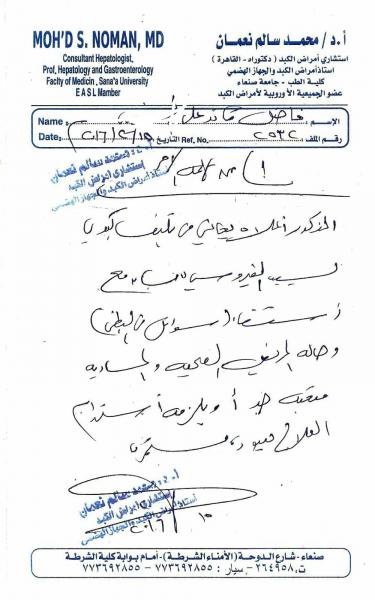 MOH'D S. NOMAN, MD
Consultant Hepatologist,
Prof, Hepatology and Gastroenterology
Faclty of Medicin , Sana'a University
E A S L Mamber
أ.د/ محمد سالم نعمان
استشاري أمراض الكبد ( دكتوراه - القاهرة )
أستاذ أمراض الكبد والجهاز الهضمي
كلية الطب - جامعة صنعاء
عضو الجمعية الأوروبية لأمراض الكبد
Name : فاضل قائد علي : الإسم
Date: التاريخ Ref. No. ٢٥٣٢ رقم الملف
أ.د. محمد سالم نعمان
إستشاري أمراض الكبد
أستاذ أمراض الكبد والجهاز الهضمي
المذكور أعلاه يعاني من تليف كبدي
بسبب الفيروس مع
أستسقاء (سوائل في البطن)
وحالة المريض الصحية والمادية
متعبة جداً ويلزمه أستخدام
العلاج
أ.د. محمد سالم نعمان
إستشاري أمراض الكبد
أستاذ أمراض الكبد والجهاز الهضمي
صنعاء - شارع الدوحة (الأمناء الشرطة) - أمام بوابة كلية الشرطة
ت: ٢٦٤٩٥٨ - سيار : ٧٧٣٦٩٢٨٥٥ - ٧٧٣٦٩٢٨٥٥